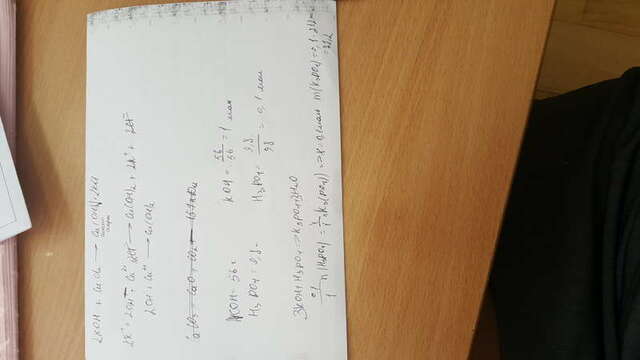 2KOH + CuCl₂ → Cu(OH)₂↓ + 2KCl
2K⁺ + 2OH⁻ + Cu²⁺ + 2Cl⁻ → Cu(OH)₂ + 2K⁺ + 2Cl⁻
2OH + Cu²⁺ → Cu(OH)₂
CaCO₃ = CaO + CO₂ -
KOH = 56 г
KOH = 56/56 = 1 моль
H₃PO₄ = 9,8 г
H₃PO₄ = 9,8/98 = 0,1 моль
3KOH + H₃PO₄ → K₃PO₄ + 3H₂O
0,1/1 n(H₃PO₄) = x/1 n(K₃(PO₄)) => x = 0,1 моль m(K₃PO₄) = 0,1 · 212 =
= 21,2